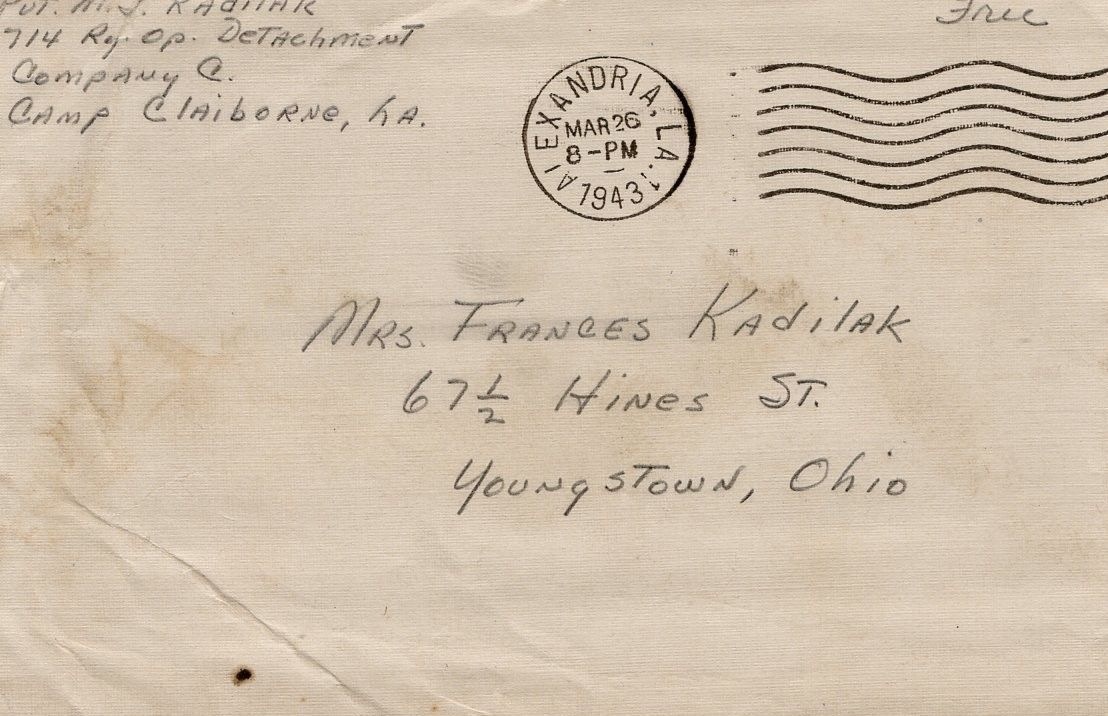 Pvt. M. J. Kadilak
714 Ry. Op. Detachment
Company C.
Camp Claiborne, La.
Free
ALEXANDRIA, LA.
MAR 26
8-PM
1943
Mrs. Frances Kadilak
67 1/2 Hines St.
Youngstown, Ohio